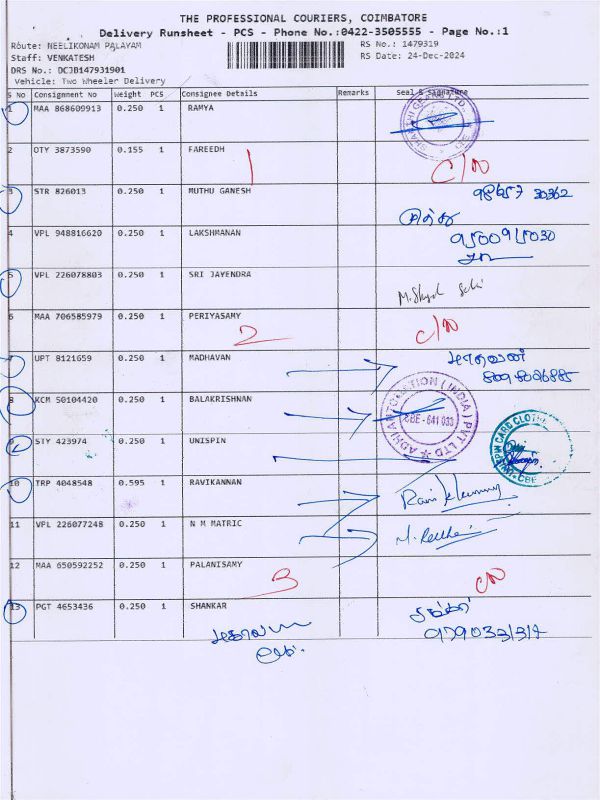 THE PROFESSIONAL COURIERS, COIMBATORE
Delivery Runsheet - PCS - Phone No.:0422-3505555 - Page No.:1
Route: NEELIKONAM PALAYAM
RS No.: 1479319
Staff: VENKATESH
RS Date: 24-Dec-2024
DRS No.: DCJB147931901
Vehicle: Two Wheeler Delivery
S No Consignment No Weight PCS Consignee Details Remarks Seal & Signature
1 MAA 868609913 0.250 1 RAMYA
2 OTY 3873590 0.155 1 FAREEDH 1 C/N
3 STR 826013 0.250 1 MUTHU GANESH 98657 30362
4 VPL 948816620 0.250 1 LAKSHMANAN 9500915030
5 VPL 226078803 0.250 1 SRI JAYENDRA
6 MAA 706585979 0.250 1 PERIYASAMY 2 C/N
7 UPT 8121659 0.250 1 MADHAVAN மாதவன்
8098026885
8 KCM 50104420 0.250 1 BALAKRISHNAN ADHI AUTOMATION (INDIA) PVT LTD ★ CBE - 641 033
9 STY 423974 0.250 1 UNISPIN UNISPIN CARD CLOTH CBE
10 TRP 4048548 0.595 1 RAVIKANNAN
11 VPL 226077248 0.250 1 N M MATRIC
12 MAA 650592252 0.250 1 PALANISAMY 3 C/N
13 PGT 4653436 0.250 1 SHANKAR சங்கர்